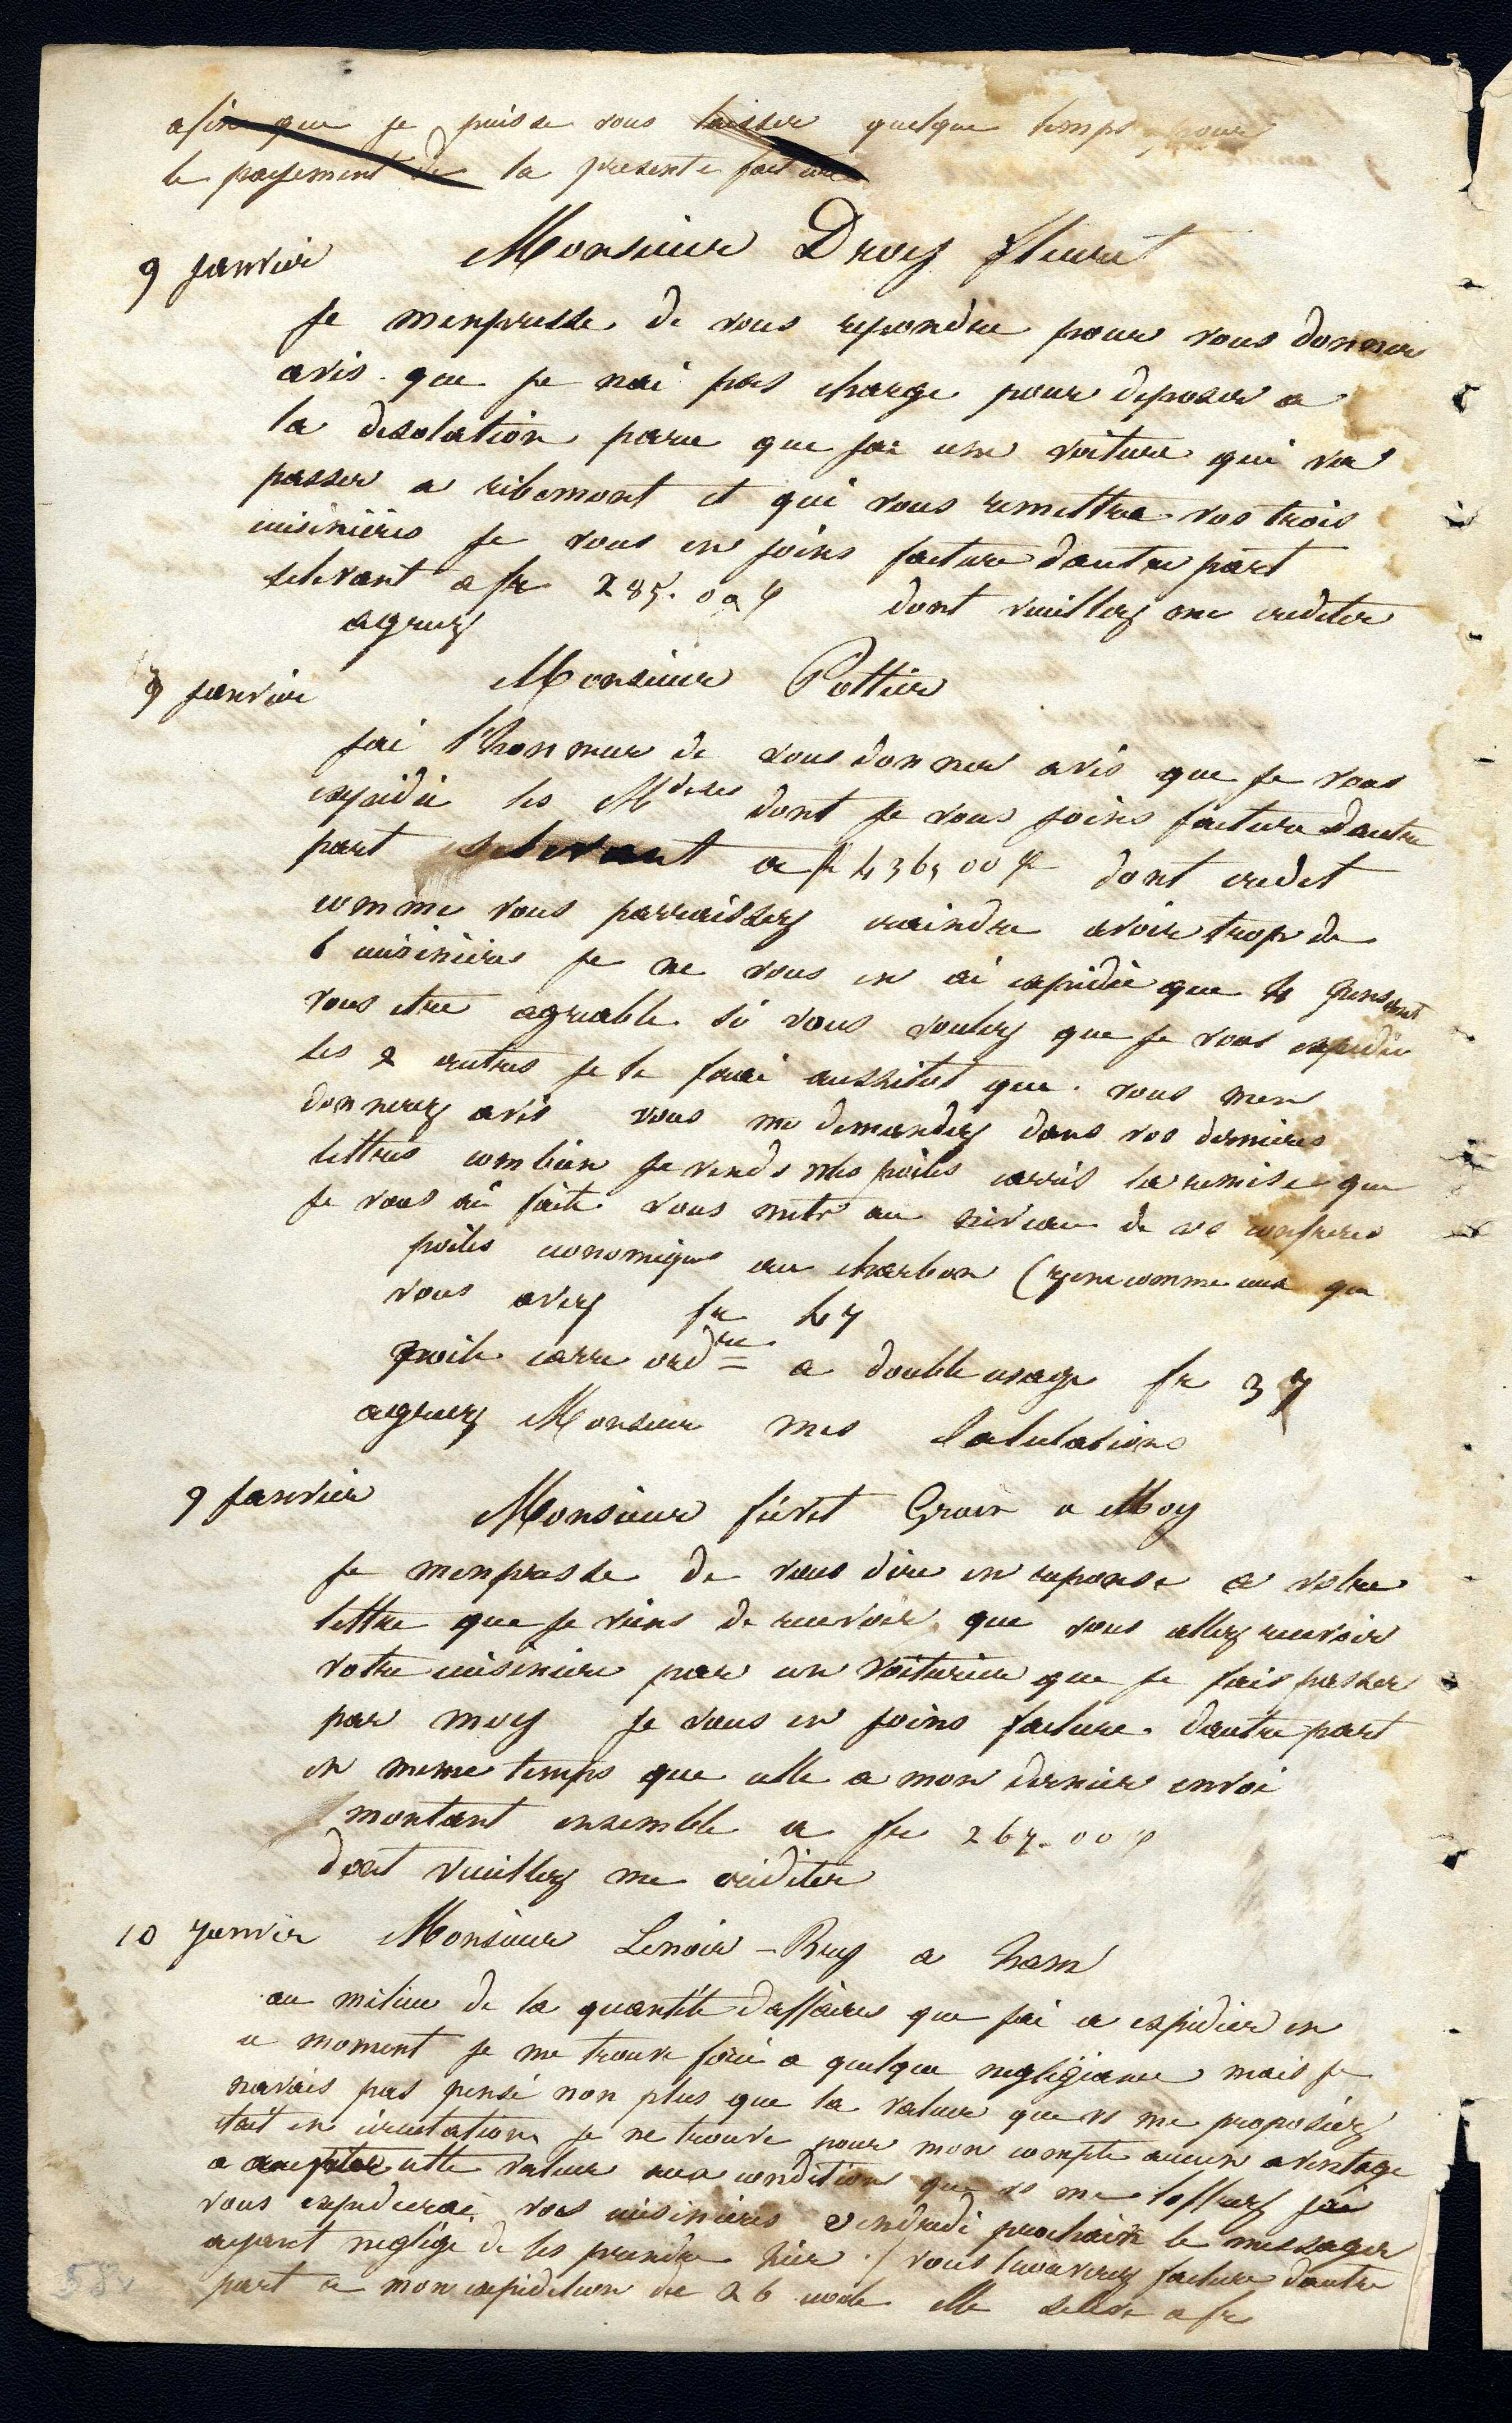 afin que je puisse vous laisser quelque temps pour
le payement de la presente facture
9 janvier Monsieur Droy fleuret
je menpresse de vous repondre pour vous donner
avis que je nai pas charge pour deposer a
la desolation parce que jai une voiture qui va
passer a ribemont et qui vous remettra vos trois
cuisinières je vous en joins facture dautre part
selevant a fr 285.00 dont veuillez me crediter
agreez
9 janvier Monsieur Pottier
jai lhonneur de vous donner avis que je vous
expidie les Mdises dont je vous joins facture dautre
part selevant a fr 436 00 dont credit
comme vous parraissez craindre avoir trop de
6 cuisinieres je ne vous en ai expidié que 4 pensant
vous etre agreable si vous voulez que je vous expedie
les 2 autres je le ferai aussitot que vous men
donnerez avis vous me demandez dans vos dernieres
lettres combien je vends mes poiles carrés la remise que
je vous ai faite vous met au niveau de vos confreres
poiles economiques au charbon (genre comme ceux que
vous avez fr 47
poile carre ordre a double usage fr 37
agreez Monsieur mes Salutations
9 janvier Monsieur fievet Grain a Moy
je menpresse de vous dire en reponse a votre
lettre que je viens de recevoir que vous allez recevoir
votre cuisiniere par un voiturier que je fais passer
par moy je vous en joins facture dautre part
en meme temps que celle a mon dernier envoi
montant ensemble a fr 267.00
dont veuillez me crediter
10 janvier Monsieur Lenoir-Rey a ham
au milieu de la quantité daffaires que jai a expidier en
ce moment je me trouve forcé a quelque negligeance mais je
navais pas pensé non plus que la valeur que vs me proposiez
etait en circulation je ne trouve pour mon compte aucun aventage
a accepter cette valeur aux condition que vs me loffrez jai
vous expedierai vos cuisinieres vendredi prochain le messager
ayant negligé de les prendre hier / vous trouverez facture dautre
part a mon expidition du 26 elle seleve a fr
58v